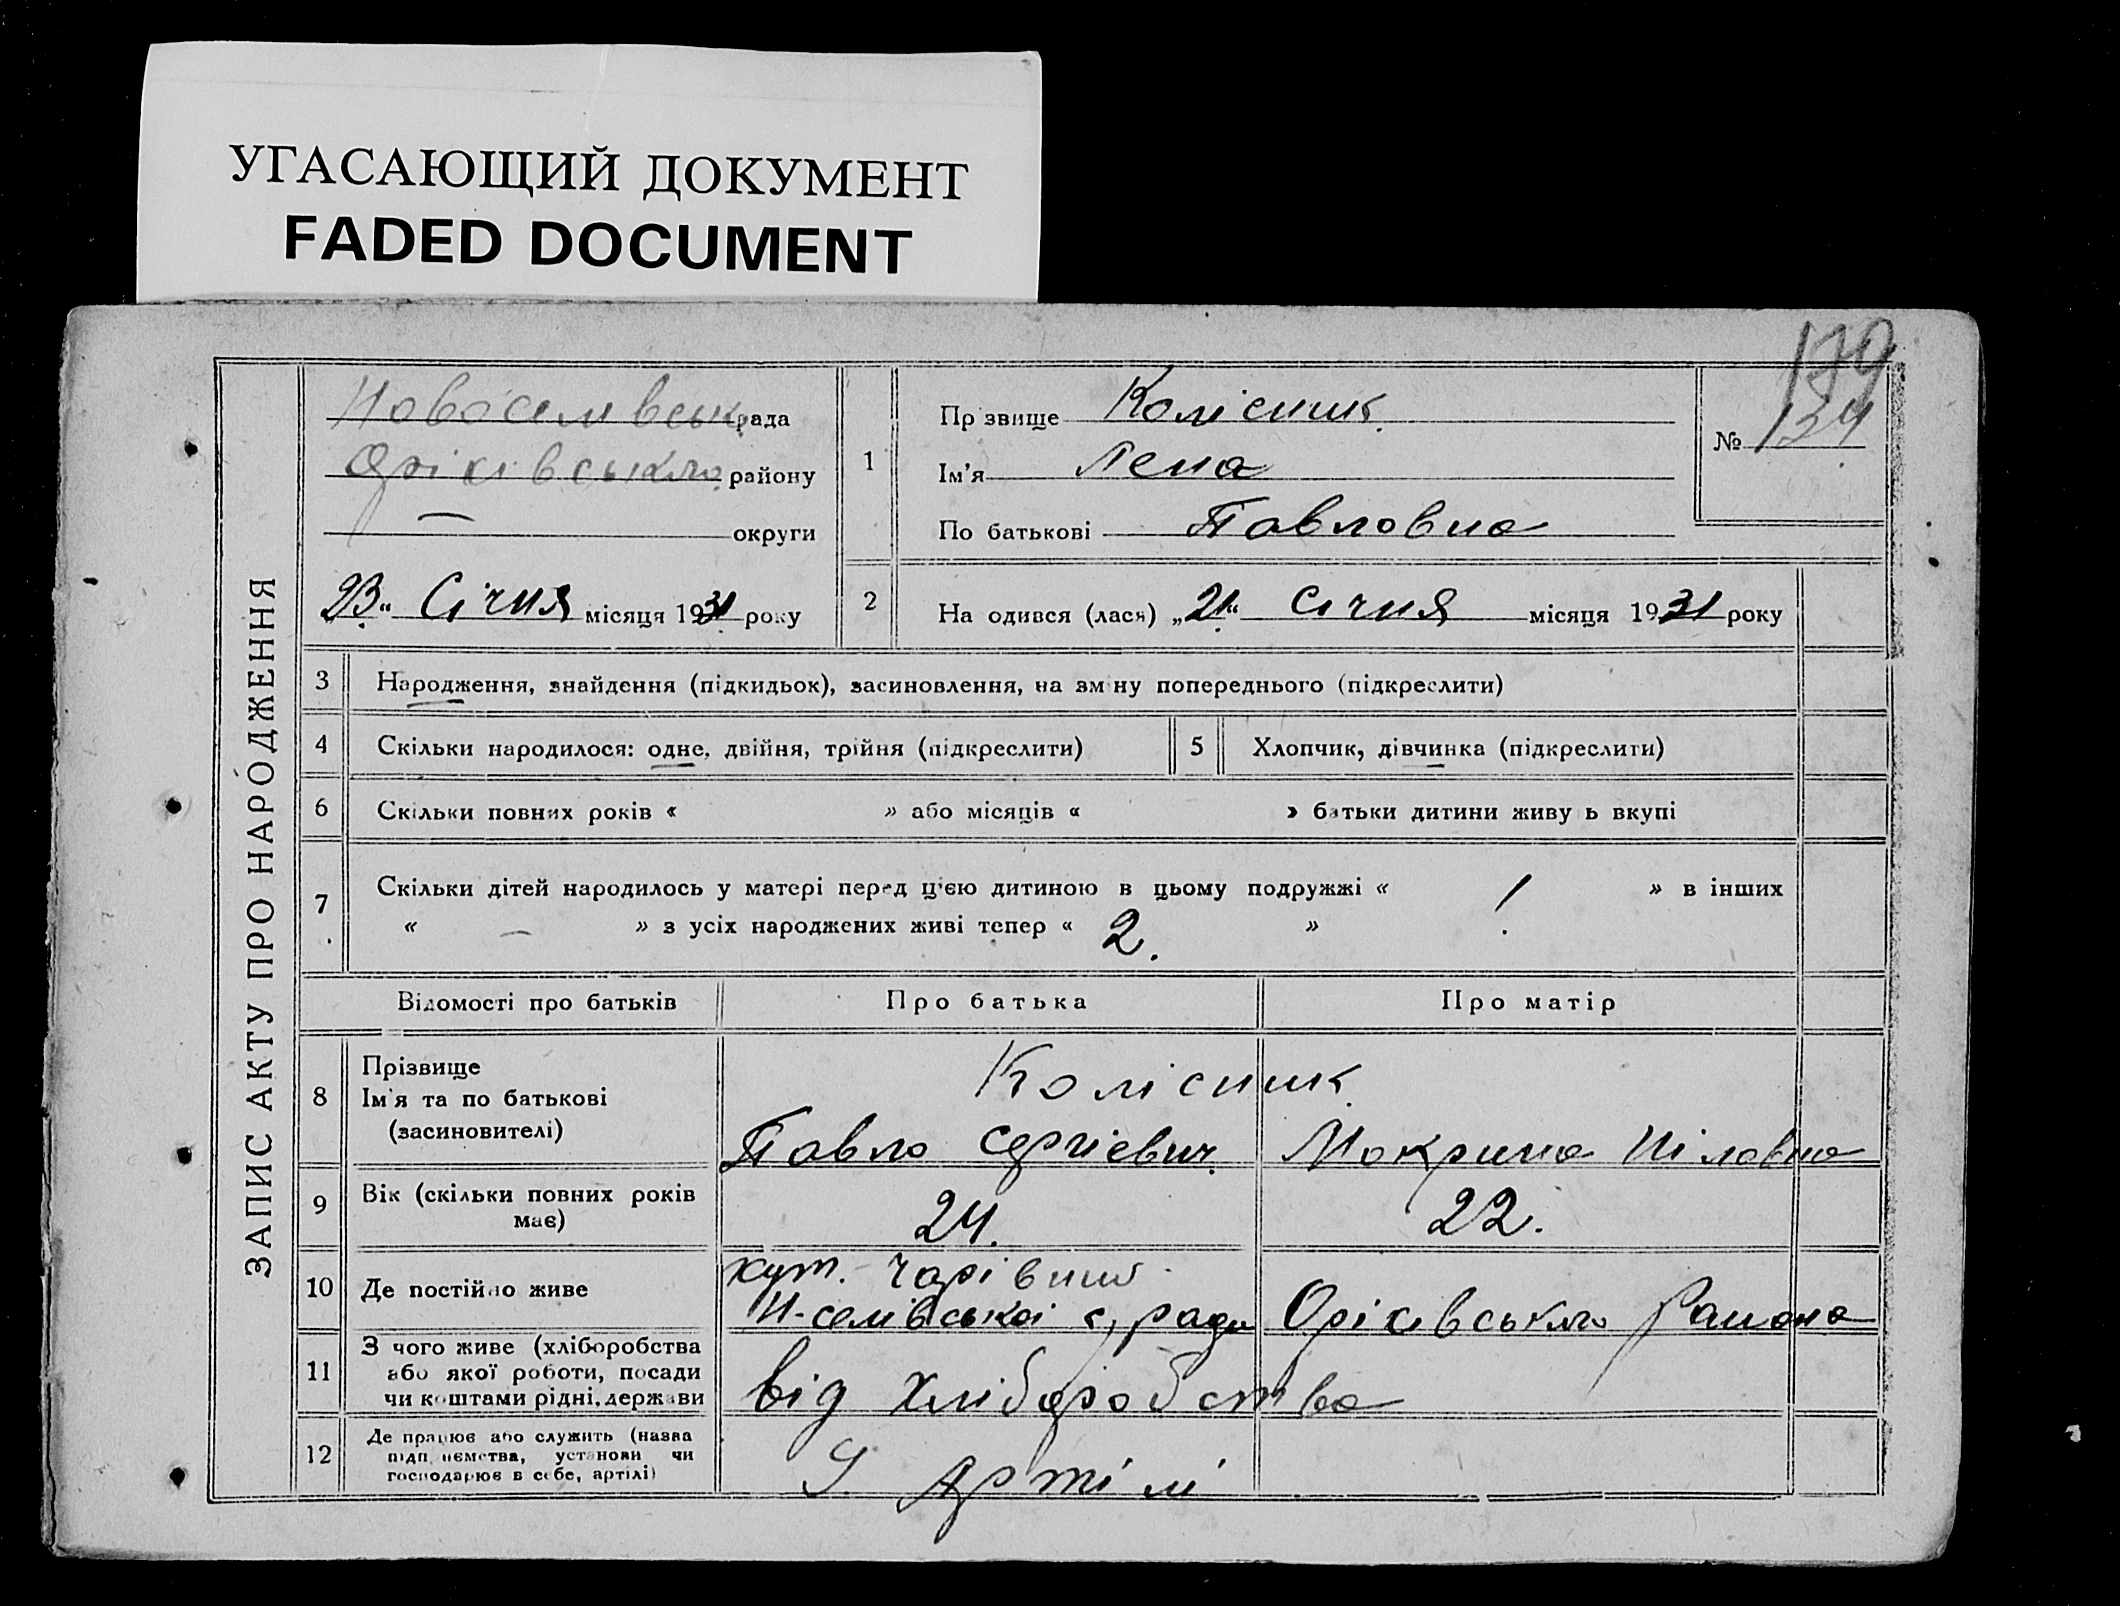 УГАСАЮЩИЙ ДОКУМЕНТ
FADED DOCUMENT
179
ЗАПИС АКТУ ПРО НАРОДЖЕННЯ
Новоселівськ рада
Оріхівського району
— округи
23 " Січня місяця 1931 року
1
Пр звище Колісник
Ім'я Лена
По батькові Павловна
№ 134
2 На одився (лася) „21" Січня місяця 1931 року
3 Народження, знайдення (підкидьок), засиновлення, на зм ну попереднього (підкреслити)
4 Скільки народилося: одне, двійня, трійня (підкреслити)
5 Хлопчик, дівчинка (підкреслити)
6 Скільки повних років « » або місяців « » батьки дитини живу ь вкупі
7 Скільки дітей народилось у матері перед ц'єю дитиною в цьому подружжі « 1 » в інших
« — » з усіх народжених живі тепер « 2. »
Відомості про батьків Про батька Про матір
8 Прізвище
Ім'я та по батькові
(засиновителі)
Колісник
Павло Сергієвич. Мокрина Ніловна
9 Вік (скільки повних років
має)
24. 22.
10 Де постійно живе
хут. Чарівний
Н-селівської с, ради Оріхівського Района
11 З чого живе (хліборобства
або якої роботи, посади
чи коштами рідні, держави
від Хліборобства
12 Де працює або служить (назва
підп иємства, установи чи
господарює в себе, артілі)
У. Артілі